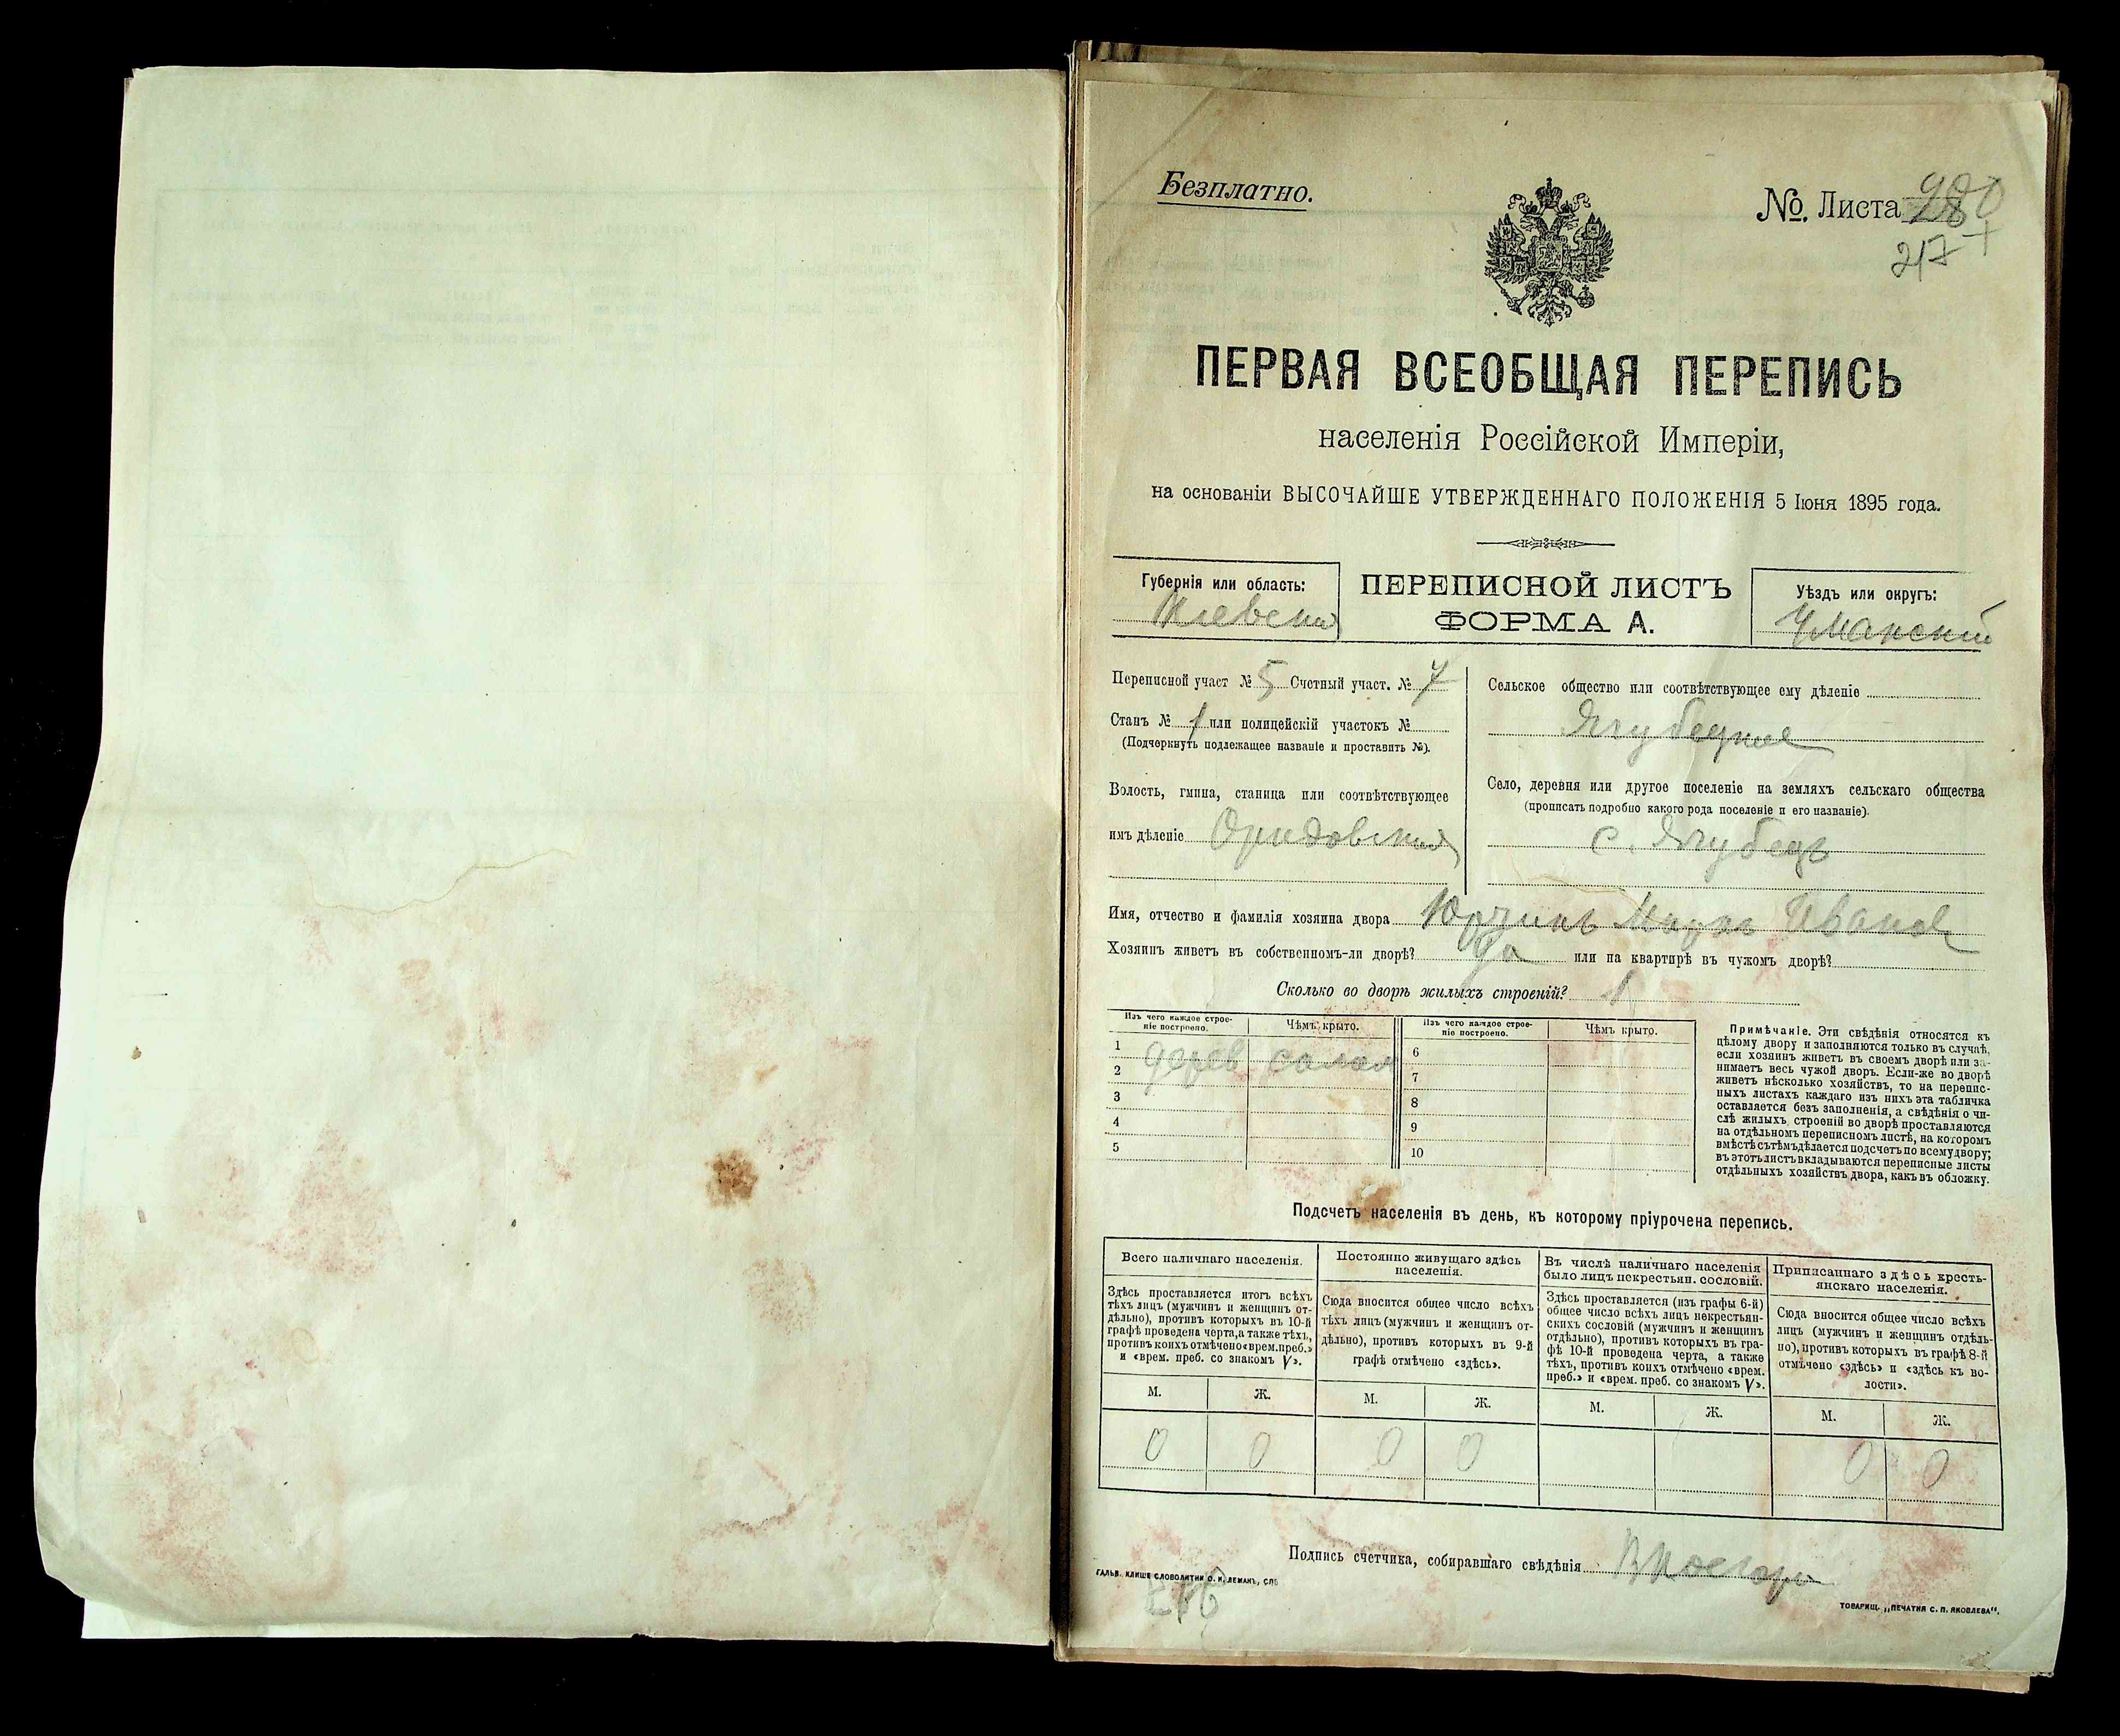 Безплатно.
№. Листа 280
217 +
ПЕРВАЯ ВСЕОБЩАЯ ПЕРЕПИСЬ
населенія Россійской Имперіи,
на основаніи ВЫСОЧАЙШЕ УТВЕРЖДЕННАГО ПОЛОЖЕНІЯ 5 Іюня 1895 года.
Губернія или область:
Кіевская
ПЕРЕПИСНОЙ ЛИСТЪ
ФОРМА А.
Уѣздъ или округъ:
Уманскій
Переписной участ № 5 Счетный участ. № 7
Станъ № 1 или полицейскій участокъ №
(Подчеркнуть подлежащее названіе и проставить №).
Волость, гмина, станица или соотвѣтствующее
имъ дѣленіе
Сельское общество или соотвѣтствующее ему дѣленіе
Ягубецкое
Село, деревня или другое поселеніе на земляхъ сельскаго общества
(прописать подробно какого рода поселеніе и его названіе).
с. Ягубецъ
Имя, отчество и фамилія хозяина двора Иванов
Хозяинъ живетъ въ собственномъ-ли дворѣ? да или на квартирѣ въ чужомъ дворѣ?
Сколько во дворѣ жилыхъ строеній? 1
Изъ чего каждое строе-
ніе построено.
Чѣмъ крыто.
1 дерев солом
2
3
4
5
Изъ чего каждое строе-
ніе построено.
Чѣмъ крыто.
6
7
8
9
10
Примѣчаніе. Эти свѣдѣнія относятся къ
цѣлому двору и заполняются только въ случаѣ,
если хозяинъ живетъ въ своемъ дворѣ или за-
нимаетъ весь чужой дворъ. Если-же во дворѣ
живетъ нѣсколько хозяйствъ, то на перепис-
ныхъ листахъ каждаго изъ нихъ эта табличка
оставляется безъ заполненія, а свѣдѣнія о чи-
слѣ жилыхъ строеній во дворѣ проставляются
на отдѣльномъ переписномъ листѣ, на которомъ
вмѣстѣ съ тѣмъ дѣлается подсчетъ по всему двору;
въ этотъ листъ вкладываются переписные листы
отдѣльныхъ хозяйствъ двора, какъ въ обложку.
Подсчетъ населенія въ день, къ которому пріурочена перепись.
Всего наличнаго населенія.
Здѣсь проставляется итогъ всѣхъ
тѣхъ лицъ (мужчинъ и женщинъ от-
дѣльно), противъ которыхъ въ 10-й
графѣ проведена черта, а также тѣхъ,
противъ коихъ отмѣчено «врем. преб.»
и «врем. преб. со знакомъ V».
М. Ж.
0 0
Постоянно живущаго здѣсь
населенія.
Сюда вносится общее число всѣхъ
тѣхъ лицъ (мужчинъ и женщинъ от-
дѣльно), противъ которыхъ въ 9-й
графѣ отмѣчено «здѣсь».
М. Ж.
0 0
Въ числѣ наличнаго населенія
было лицъ некрестьян. сословій.
Здѣсь проставляется (изъ графы 6-й)
общее число всѣхъ лицъ некрестьян-
скихъ сословій (мужчинъ и женщинъ
отдѣльно), противъ которыхъ въ гра-
фѣ 10-й проведена черта, а также
тѣхъ, противъ коихъ отмѣчено «врем.
преб.» и «врем. преб. со знакомъ V».
М. Ж.
Приписаннаго здѣсь кресть-
янскаго населенія.
Сюда вносится общее число всѣхъ
лицъ (мужчинъ и женщинъ отдѣль-
но), противъ которыхъ въ графѣ 8-й
отмѣчено «здѣсь» и «здѣсь къ во-
лости».
М. Ж.
0 0
Подпись счетчика, собиравшаго свѣдѣнія
ГАЛЬВ. КЛИШЕ СЛОВОЛИТНИ О. И. ЛЕМАНЪ, СПБ
ТОВАРИЩ. „ПЕЧАТНЯ С. П. ЯКОВЛЕВА".